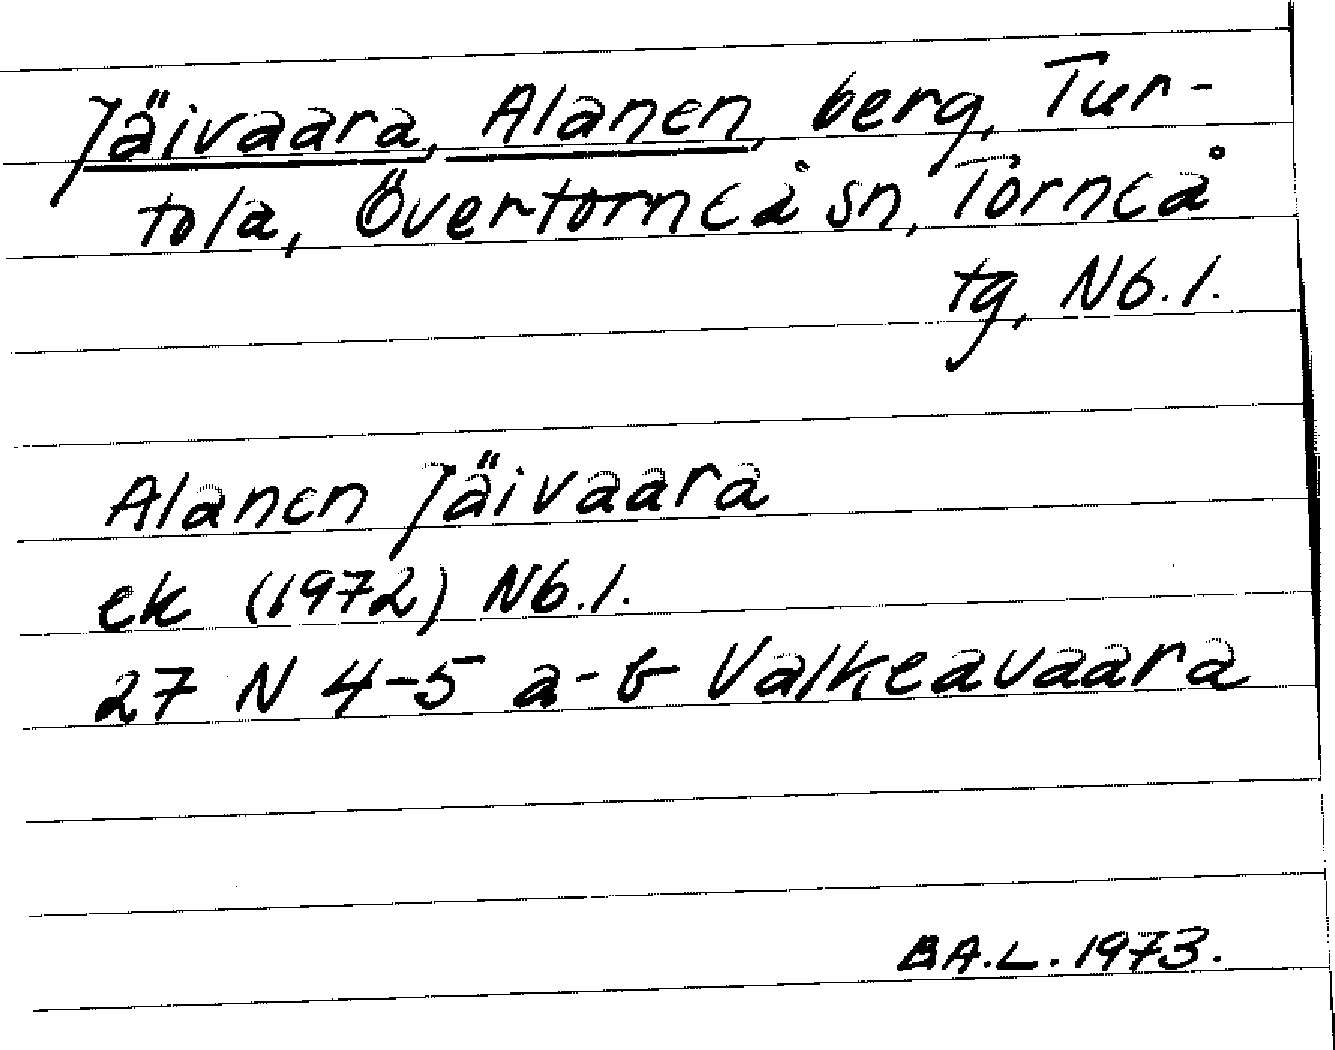 Jäivaara, Alanen, berg, Tur-
tola, Övertorneå sn, Torneå
tg, Nb.l.
Alanen Jäivaara
ek (1972) Nb.l.
27 N 4-5 a-b Valkeavaara
BA.L. 1973.